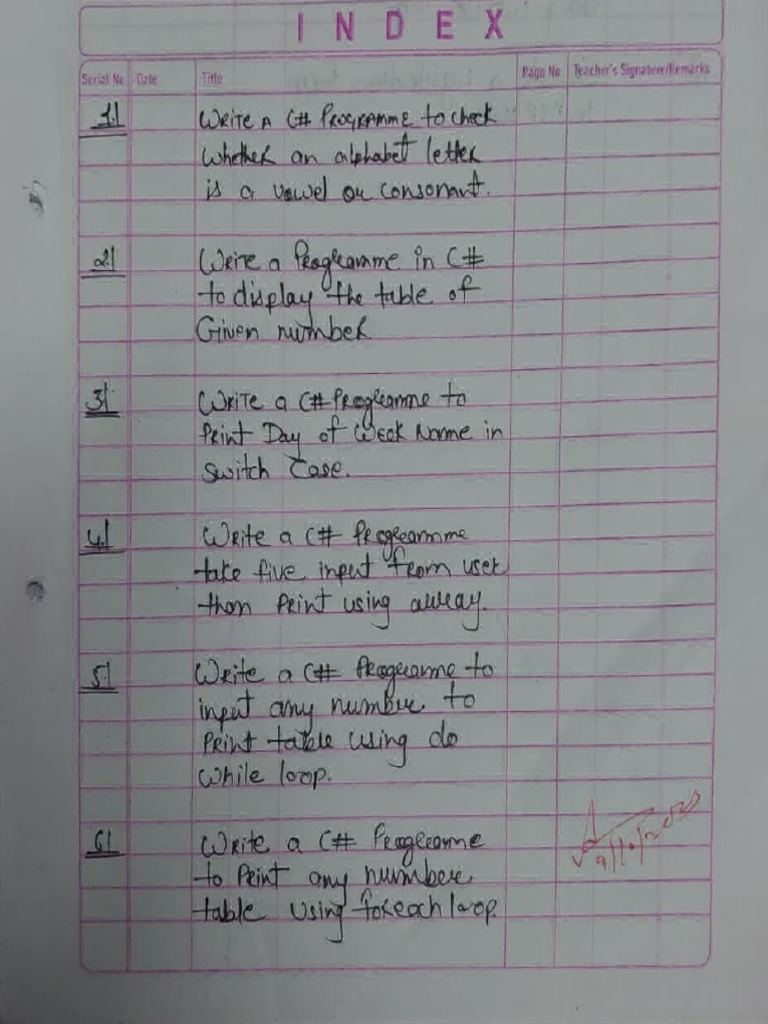 INDEX
Serial No Date Title Page No Teacher's Signature/Remarks
1.| WRITE A C# PROGRAMME to check
whether an alphabet letter
is a vowel or consonant.
2.| Write a Programme in C#
to display the table of
Given number
3.| WRITE a C# Programme to
Print Day of Week Name in
Switch Case.
4.| Write a C# Programme
take five input from user
than Print using array.
5.| Write a C# Programme to
input any number to
Print table using do
while loop.
6.| Write a C# Programme
to Print any number
table using foreach loop.